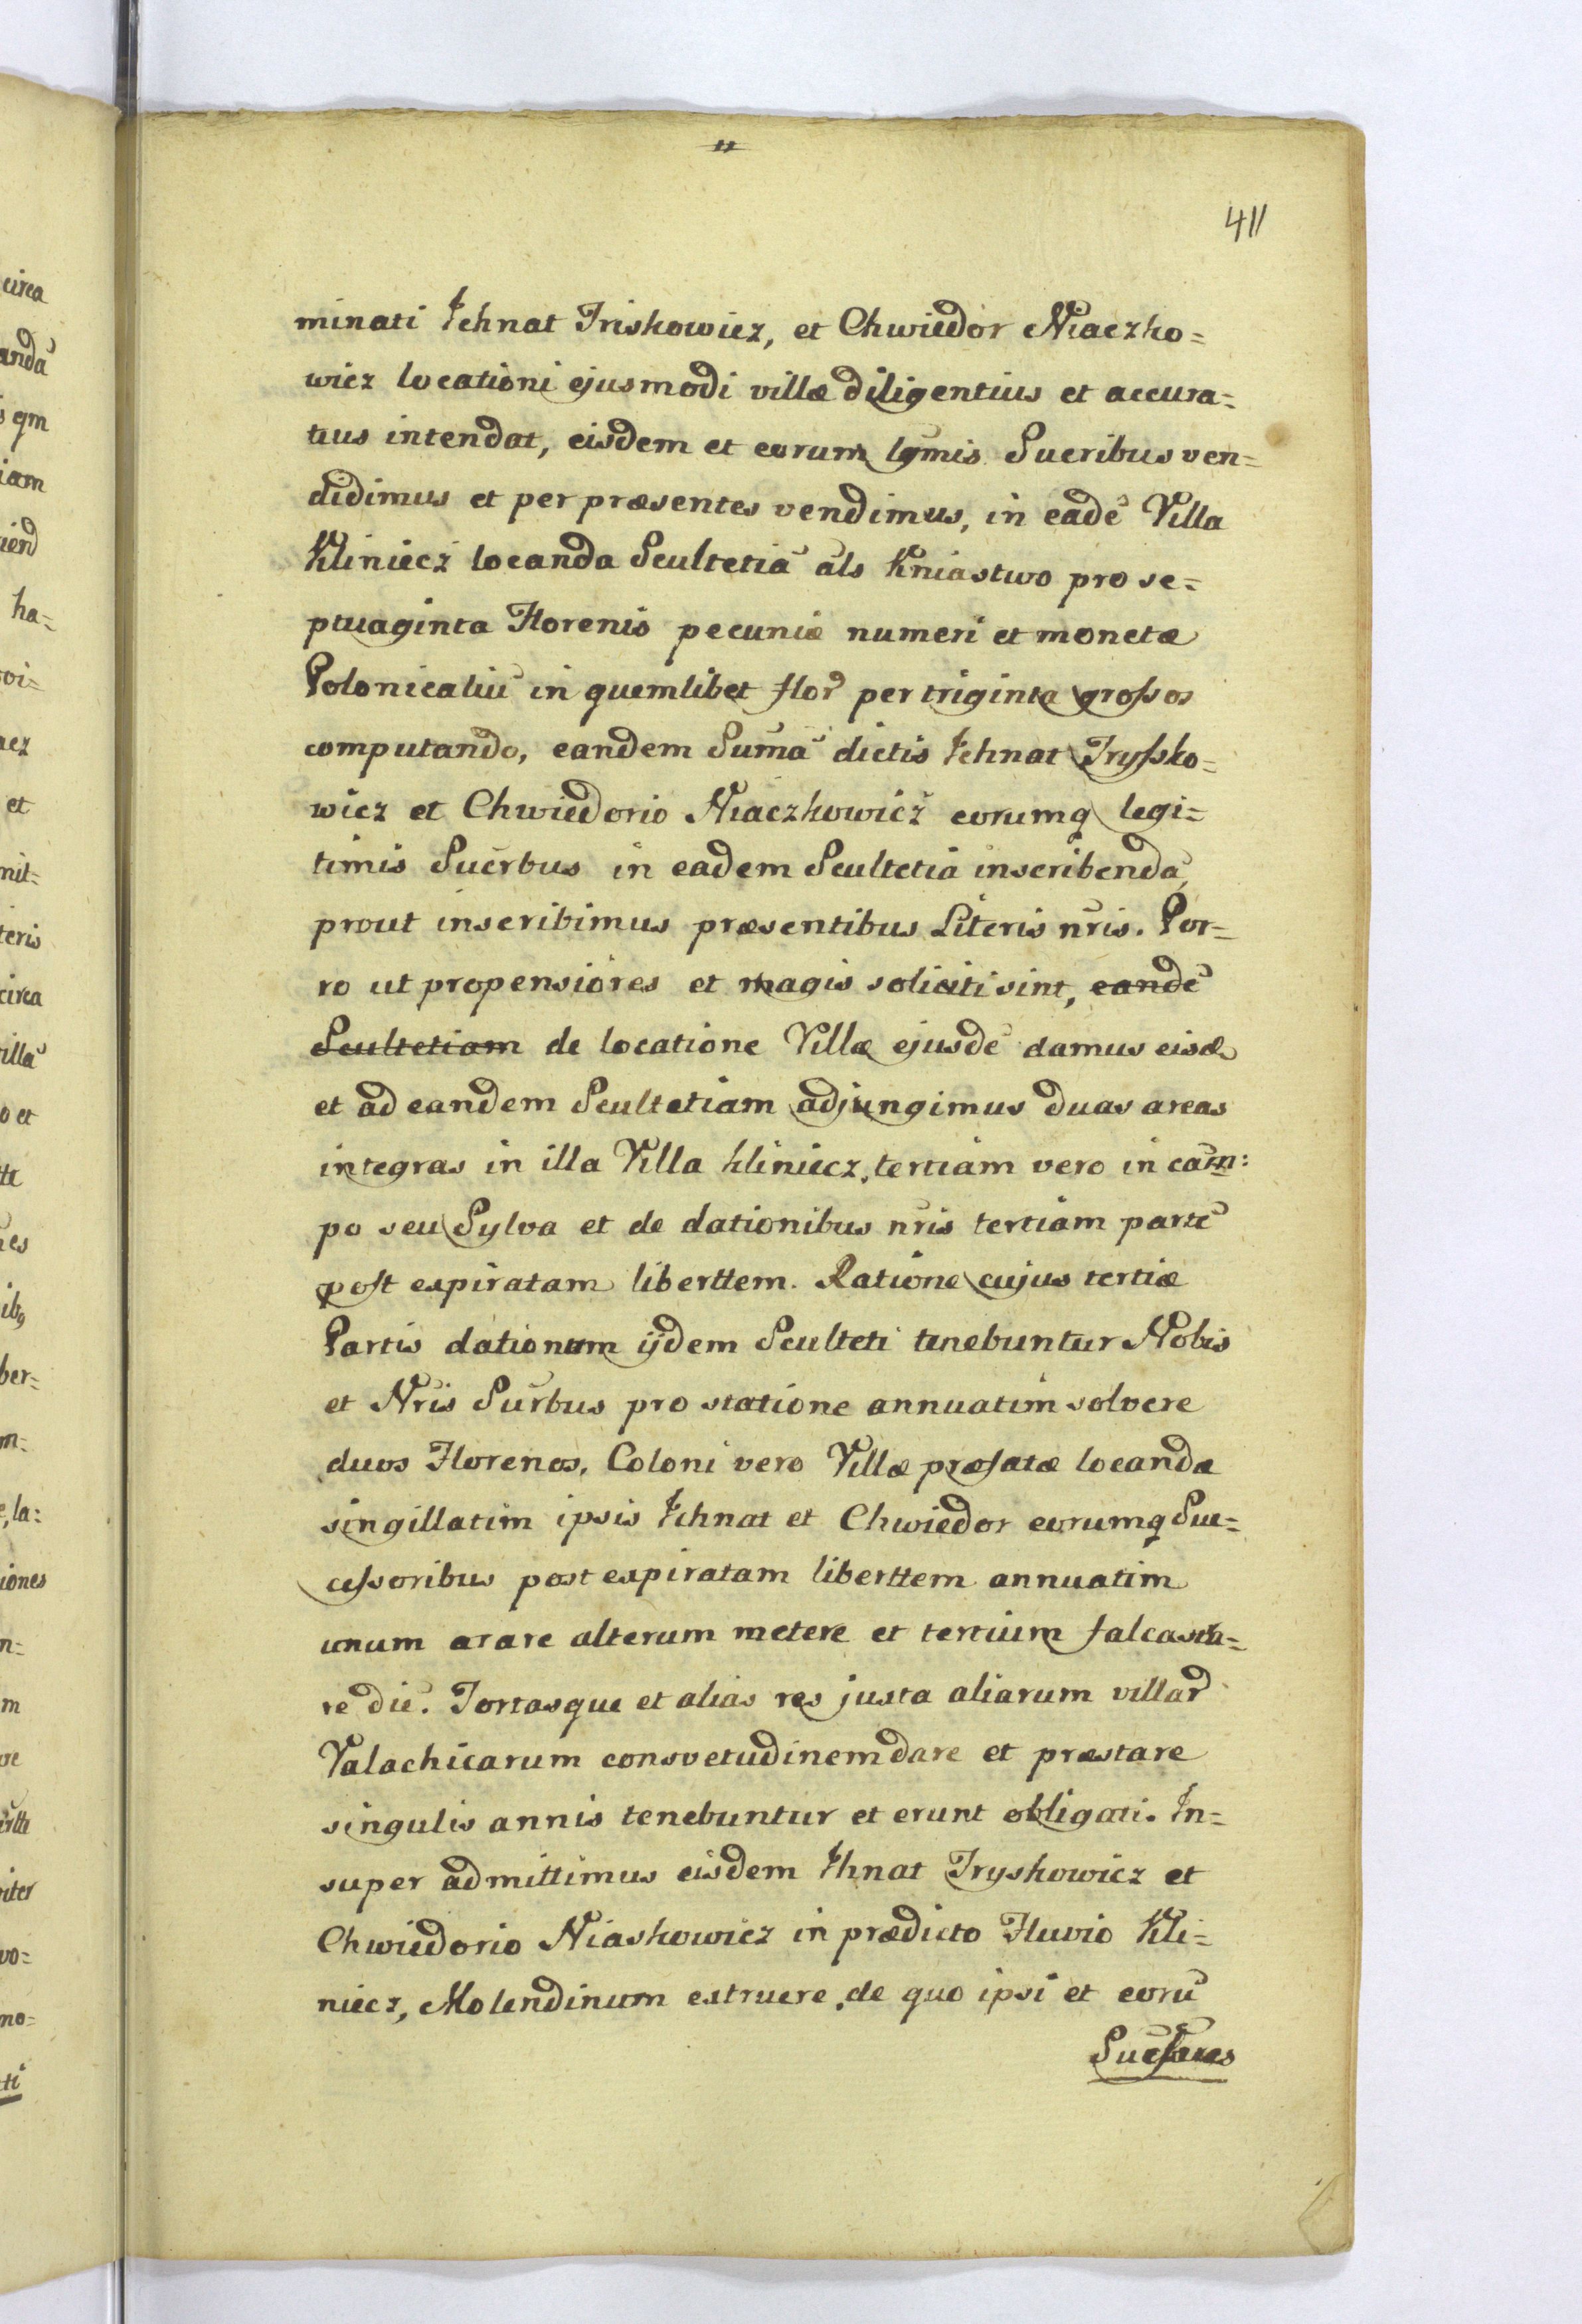 411
minati Jehnat Iriskowicz, et Chwiedor Niaczko=
wicz locationi ejusmodi villæ diligentius et accura=
tius intendat, eisdem et eorum lgmis Sucribus ven=
didimus et per præsentes vendimus, in eadē Villa
Kliniecz locanda Scultetiā als Kniastwo pro se=
ptuaginta Florenis pecuniæ numeri et monetæ
Polonicaliū in quemlibet flor per triginta grossos
computando, eandem Sumā dictis Jehnat Irysko=
wicz et Chwiedorio Niaczkowicz eorumq legi=
timis Sucrbus in eadem Scultetia inscribendā,
prout inscribimus præsentibus Literis nris. Por=
ro ut propensiores et magis soliciti sint, eandē
Scultetiam de locatione Villæ ejusdē damus eisd.
et ad eandem Scultetiam adjungimus duas areas
integras in illa Villa Kliniecz, tertiam vero in cam:
po seu Sylva et de dationibus nris tertiam partē
post expiratam liberttem. Ratione cujus tertiæ
Partis dationum ijdem Sculteti tenebuntur Nobis
et Nris Surbus pro statione annuatim solvere
duos Florenos. Coloni vero Villæ præfatæ locandæ
singillatim ipsis Jehnat et Chwiedor eorumq Suc=
cessoribus post expiratam liberttem annuatim
unum arare alterum metere et tertium falcastra=
re diē. Tortasque et alias res juxta aliarum villar
Valachicarum consvetudinem dare et præstare
singulis annis tenebuntur et erunt obligati. In=
super admittimus eisdem Ihnat Iryskowicz et
Chwiedorio Niaskowicz in prædicto Fluvio Kli=
niecz, Molendinum extruere, de quo ipsi et eorū
Sucssres